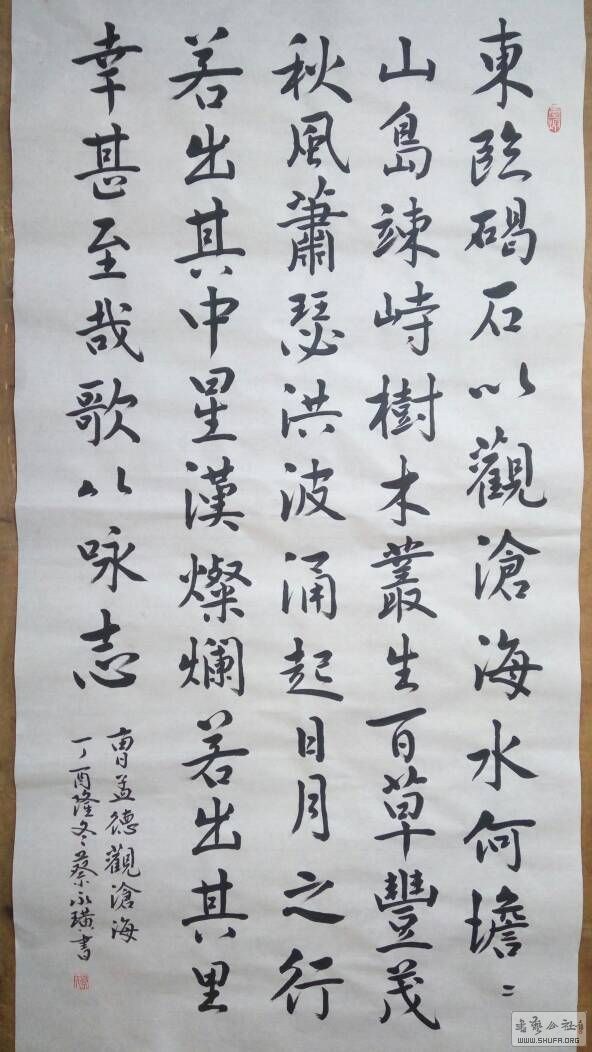 東臨碣石以觀滄海水何澹〻
山島竦峙樹木叢生百草豐茂
秋風蕭瑟洪波涌起日月之行
若出其中星漢燦爛若出其里
幸甚至哉歌以咏志
曹孟德觀滄海
丁酉隆冬蔡永璜書
WWW.SHUFA.ORG